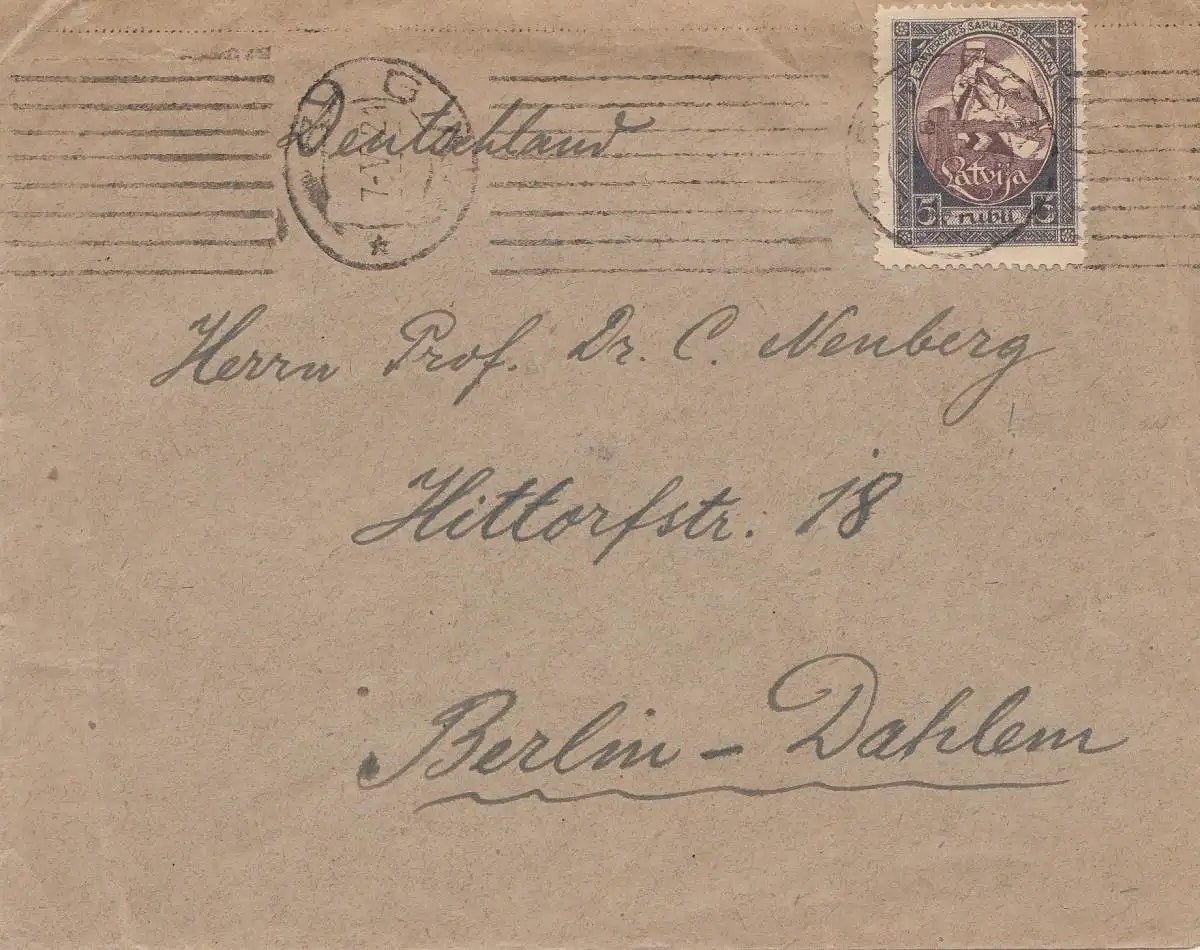 RIGA
7-V 21
Deutschland
SATVERSMES SAPULCES PEEMIŅAI
Latvija
5 rubļi 5
Herrn Prof. Dr. C. Neuberg
Hittorfstr. 18
Berlin-Dahlem